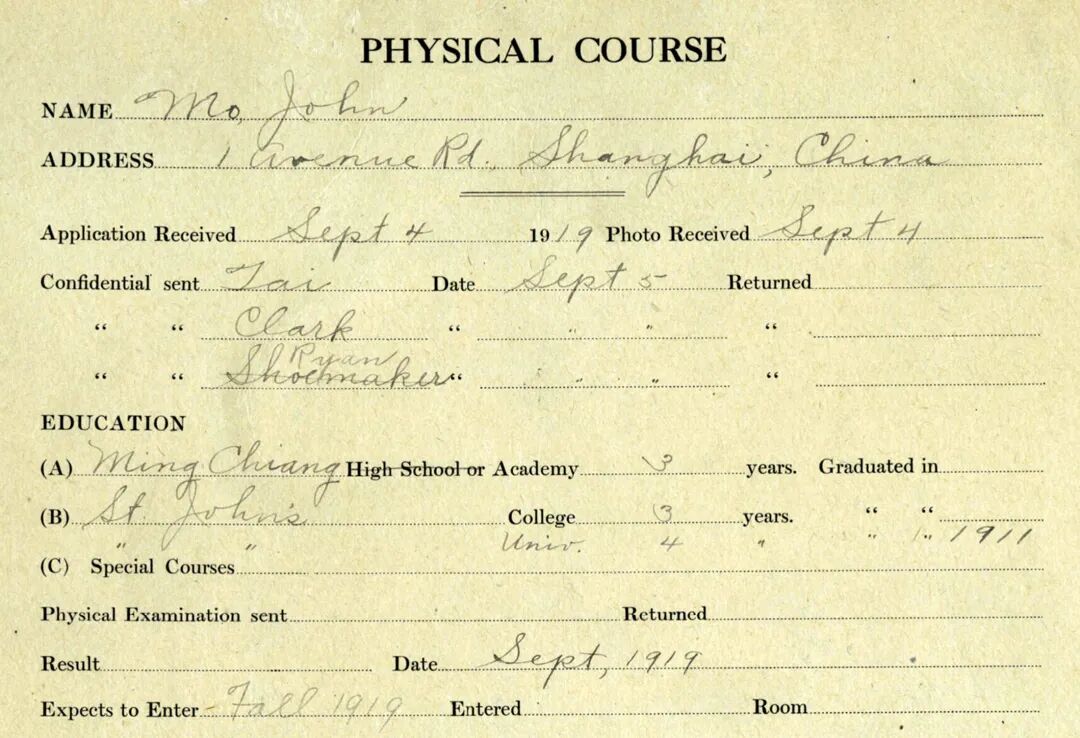 PHYSICAL COURSE
NAME Mo, John
ADDRESS 1 Avenue Rd. Shanghai, China
Application Received Sept 4 1919 Photo Received Sept 4
Confidential sent Tai Date Sept 5 Returned
" " Clark " " " "
Ryan
" " Shoemaker " " " "
EDUCATION
(A) Ming Chiang High School or Academy 3 years. Graduated in
(B) St. John's College 3 years. " "
" " Univ. 4 " " " 1911
(C) Special Courses
Physical Examination sent Returned
Result Date Sept, 1919
Expects to Enter - Fall 1919 Entered Room